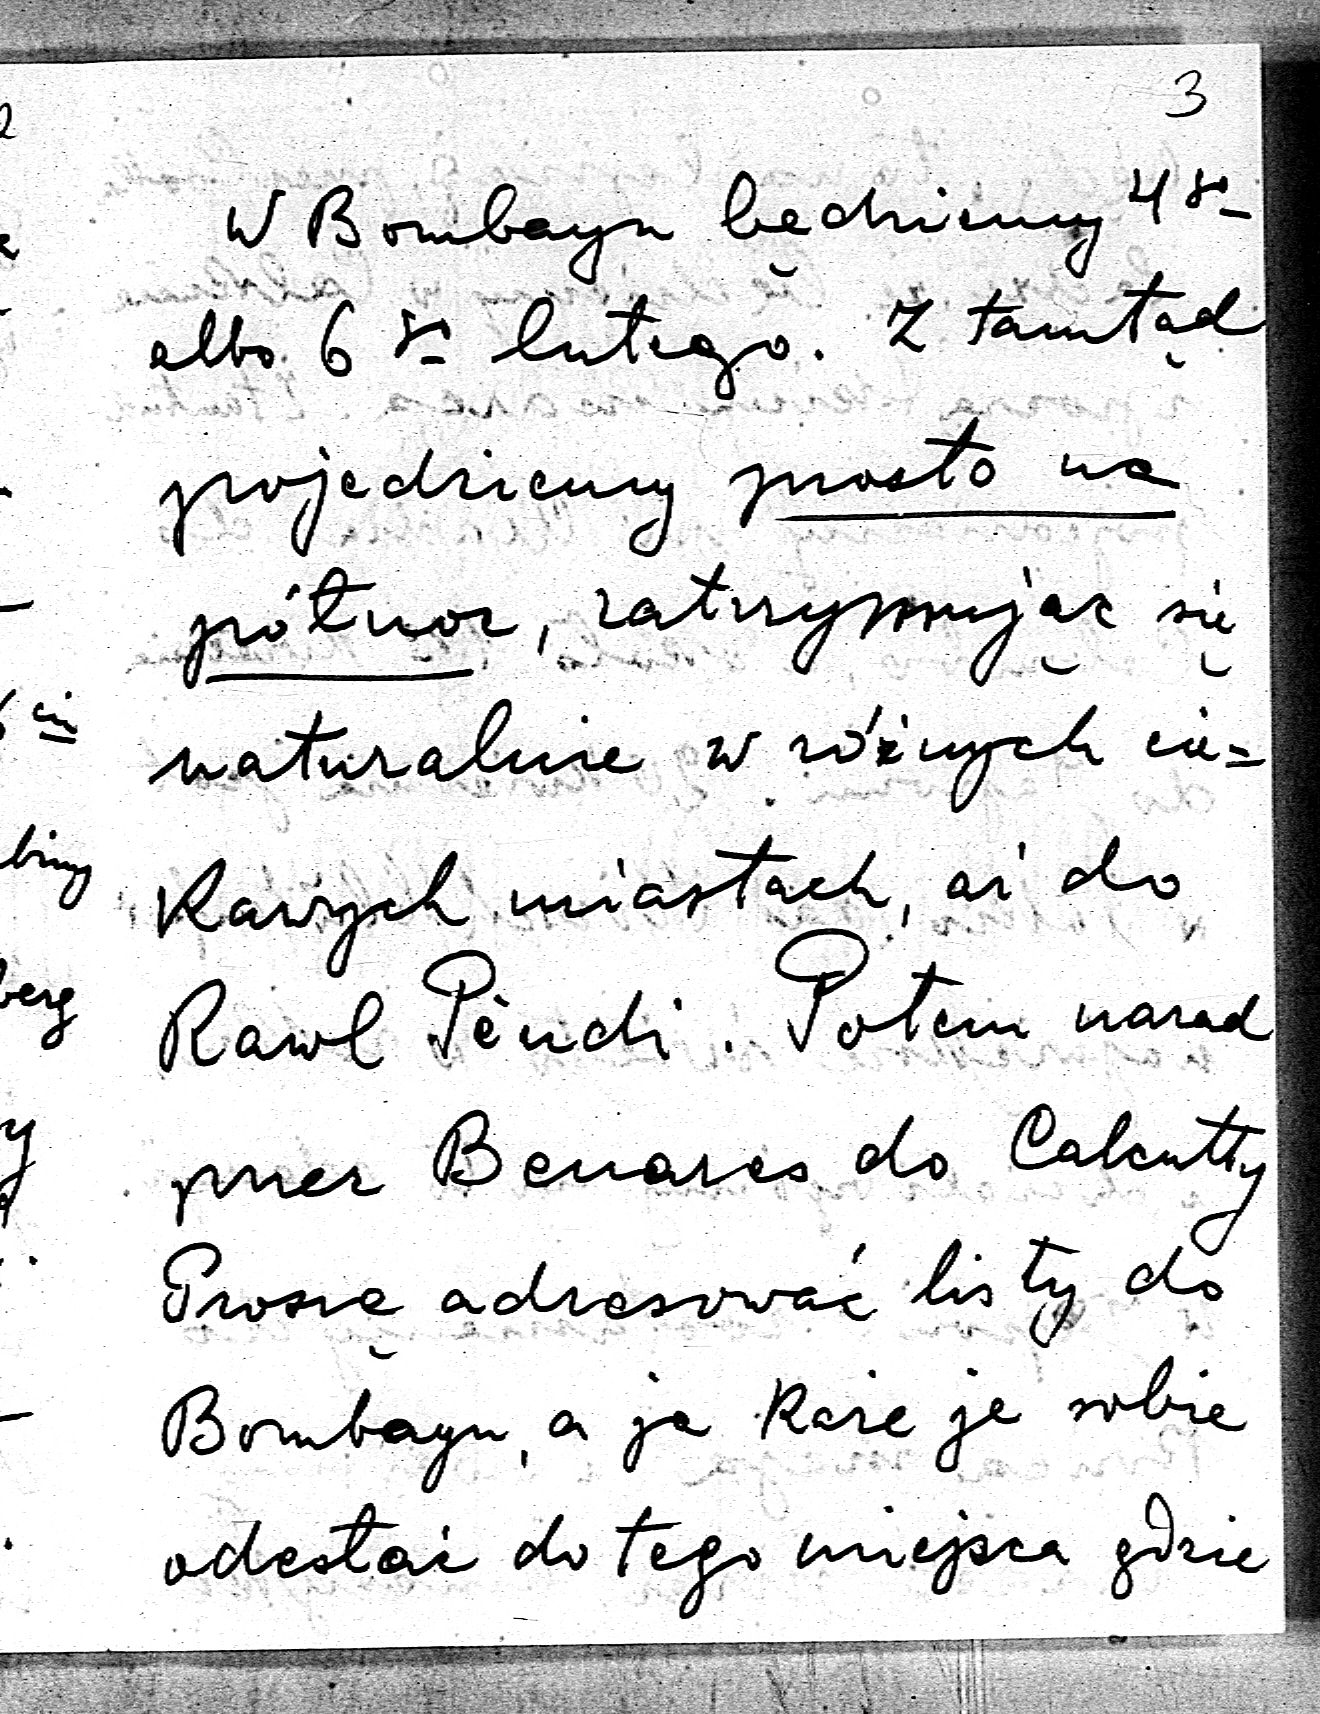 3
W Bombayu będziemy 4 go
albo 6 go lutego. Z tamtąd
pojedziemy prosto na
północ, zatrzymując się
naturalnie w różnych cie=
kawych miastach, aż do
Rawl Pěndi. Potem nazad
przez Benares do Calcutty
Proszę adresować listy do
Bombayu, a ja każe je sobie
odesłać do tego miejsca gdzie